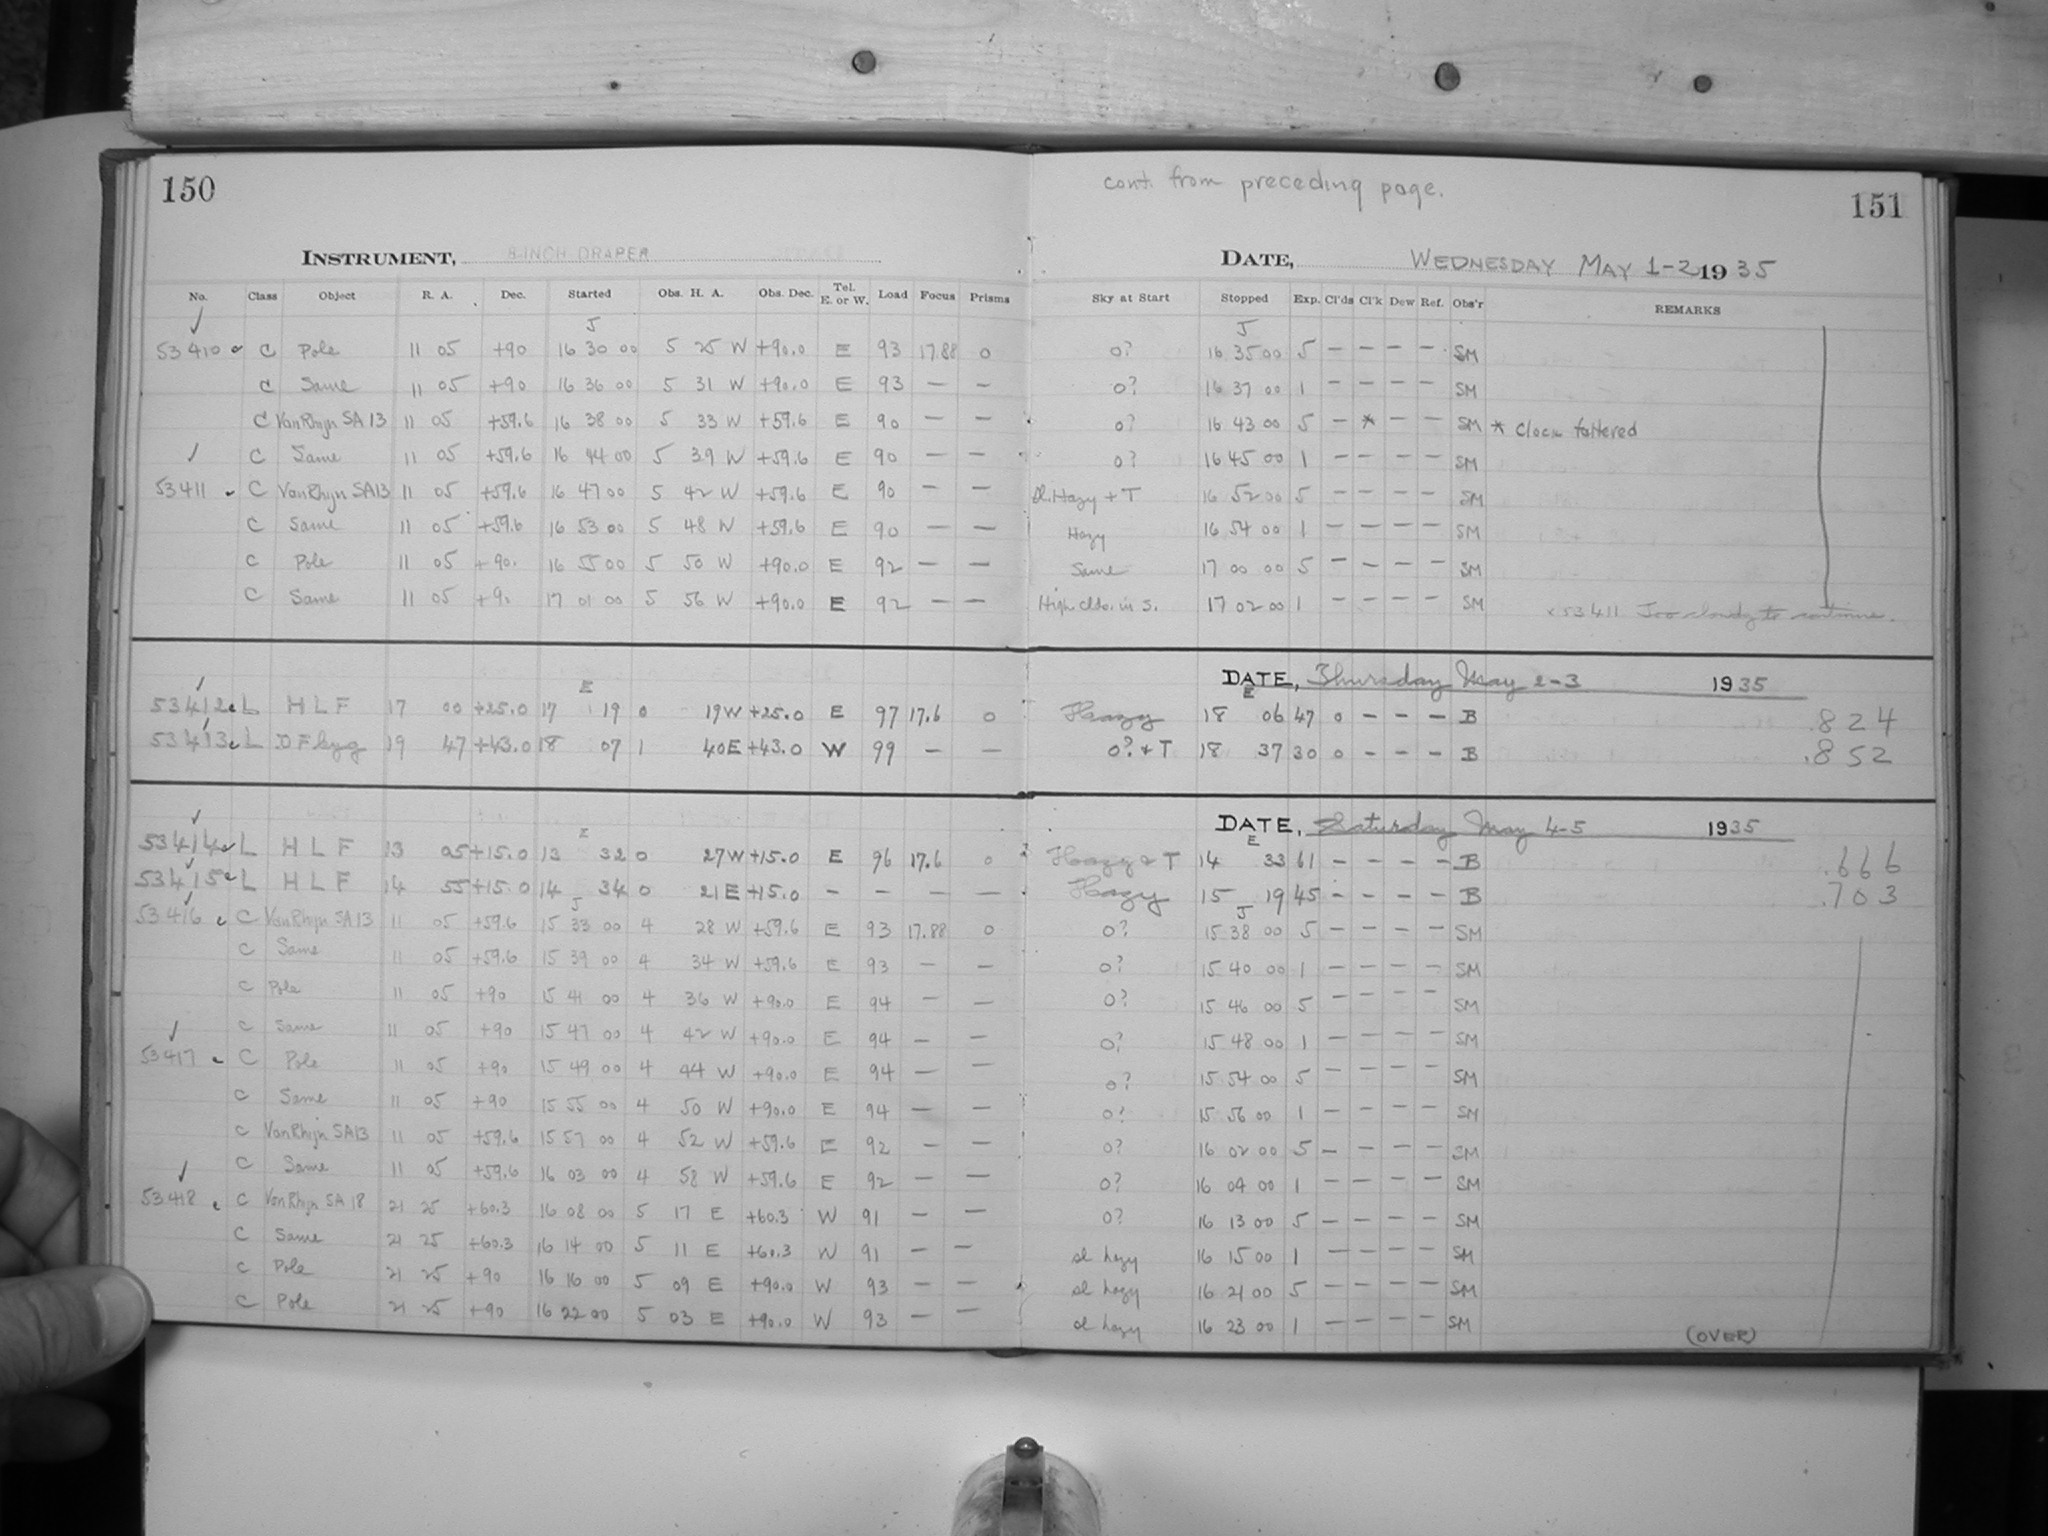 150
cont. from preceding page.
151
INSTRUMENT, 8-INCH DRAPER
DATE, WEDNESDAY MAY 1-2 1935
No. Class Object R. A. Dec. Started Obs. H. A. Obs. Dec. Tel. E. or W. Load Focus Prisms Sky at Start Stopped Exp. Cl'ds Cl'k Dew Ref. Obs'r REMARKS
J J
53410 C Pole 11 05 +90 16 30 00 5 25 W +90.0 E 93 17.88 0 0? 16 35 00 5 – – – – SM
C Same 11 05 +90 16 36 00 5 31 W +90.0 E 93 – – 0? 16 37 00 1 – – – – SM
C Van Rhijn SA 13 11 05 +59.6 16 38 00 5 33 W +59.6 E 90 – – 0? 16 43 00 5 – * – – SM * Clock faltered
C Same 11 05 +59.6 16 44 00 5 39 W +59.6 E 90 – – 0? 16 45 00 1 – – – – SM
53411 C Van Rhijn SA13 11 05 +59.6 16 47 00 5 42 W +59.6 E 90 – – sl. Hazy + T 16 52 00 5 – – – – SM
C Same 11 05 +59.6 16 53 00 5 48 W +59.6 E 90 – – Hazy 16 54 00 1 – – – – SM
C Pole 11 05 +90. 16 55 00 5 50 W +90.0 E 92 – – Same 17 00 00 5 – – – – SM
C Same 11 05 +90 17 01 00 5 56 W +90.0 E 92 – – High clds. in S. 17 02 00 1 – – – – SM x 53411 Too cloudy to continue.
DATE, Thursday May 2-3 1935
E E
53412 L H L F 17 00 +25.0 17 19 0 19 W +25.0 E 97 17.6 0 Hazy 18 06 47 0 – – – B .824
53413 L D F Cyg 19 47 +43.0 18 07 1 40 E +43.0 W 99 – – 0? + T 18 37 30 0 – – – B .852
DATE, Saturday May 4-5 1935
E E
53414 L H L F 13 05 +15.0 13 32 0 27 W +15.0 E 96 17.6 0 Hazy & T 14 33 61 – – – – B .666
53415 L H L F 14 55 +15.0 14 34 0 21 E +15.0 – – – – Hazy 15 19 45 – – – – B .703
J J
53416 C Van Rhijn SA 13 11 05 +59.6 15 33 00 4 28 W +59.6 E 93 17.88 0 0? 15 38 00 5 – – – – SM
C Same 11 05 +59.6 15 39 00 4 34 W +59.6 E 93 – – 0? 15 40 00 1 – – – – SM
C Pole 11 05 +90 15 41 00 4 36 W +90.0 E 94 – – 0? 15 46 00 5 – – – – SM
C Same 11 05 +90 15 47 00 4 42 W +90.0 E 94 – – 0? 15 48 00 1 – – – – SM
53417 C Pole 11 05 +90 15 49 00 4 44 W +90.0 E 94 – – 0? 15 54 00 5 – – – – SM
C Same 11 05 +90 15 55 00 4 50 W +90.0 E 94 – – 0? 15 56 00 1 – – – – SM
C Van Rhijn SA13 11 05 +59.6 15 57 00 4 52 W +59.6 E 92 – – 0? 16 02 00 5 – – – – SM
C Same 11 05 +59.6 16 03 00 4 58 W +59.6 E 92 – – 0? 16 04 00 1 – – – – SM
53418 C Van Rhijn SA 18 21 25 +60.3 16 08 00 5 17 E +60.3 W 91 – – 0? 16 13 00 5 – – – – SM
C Same 21 25 +60.3 16 14 00 5 11 E +60.3 W 91 – – sl hazy 16 15 00 1 – – – – SM
C Pole 21 25 +90 16 16 00 5 09 E +90.0 W 93 – – sl hazy 16 21 00 5 – – – – SM
C Pole 21 25 +90 16 22 00 5 03 E +90.0 W 93 – – sl hazy 16 23 00 1 – – – – SM
(OVER)